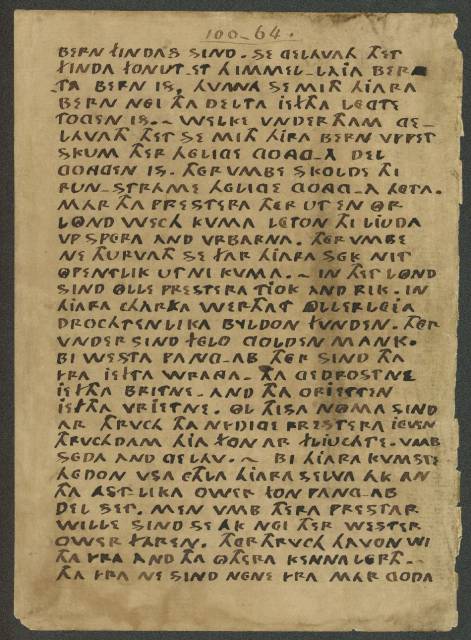 100-64.
BERN FINDAS SIND. SE GELAVATH THET
FINDA FON UT-ET HIMMEL-LAIA BER
TA BERN IS, HVANA SE MITH HIARA
BERN NEI THA DELTA IEFTHA LEGTE
TOGEN IS.~ WELKE VNDER THAM GE-
LAVATH THET SE MITH HIRA BERN VPPET
SKUM THER HELIGE GONGGA DEL
GONGEN IS. THERUMBE SKOLDE THI
RUN-STRAME HELIGE GONGGA HETA.
MAR THA PRESTERA THER UT EN OR
LOND WECH KVMA LETON THI LIUDA
VPSPERA AND VRBARNA. THERUMBE
NE THURVATH SE FAR HIARA SEK NIT
OPENTLIK UT NI KVMA.~ IN THET LOND
SIND OLLE PRESTERA TIOK AND RIK. IN
HIARA CHARKA WERTHAT OLLERLEIA
DROCHTENLIKA BYLDON FUNDEN. THER
VNDER SIND FELO GOLDEN MANK.
BI WESTA PANG-AB THER SIND THA
YRA IEFTHA WRANGA. THA GEDROSTNE
IEFTHA BRITNE. AND THA ORIETTEN
IEFTHA VRIETNE. OL THISA NOMA SIND
AR THRVCH THA NYDIGE PRESTERA IEVEN
THRVCHDAM HIA FON AR FLIVCHTE. VMB
SEDA AND GELAV.~ BI HIARA KVMSTE
HEDON VSA ETHLA HIARA SELVA AK AN
THA AST-LIKA OWER FON PANG-AB
DEL SET. MEN VMB THERA PRESTAR
WILLE SIND SE AK NEI THER WESTER
OWER FAREN. THERTHRVCH HAVON WI
THA YRA AND THA OTHERA KENNA LERTH.~
THA YRA NE SIND NENE YRA MAR GODA